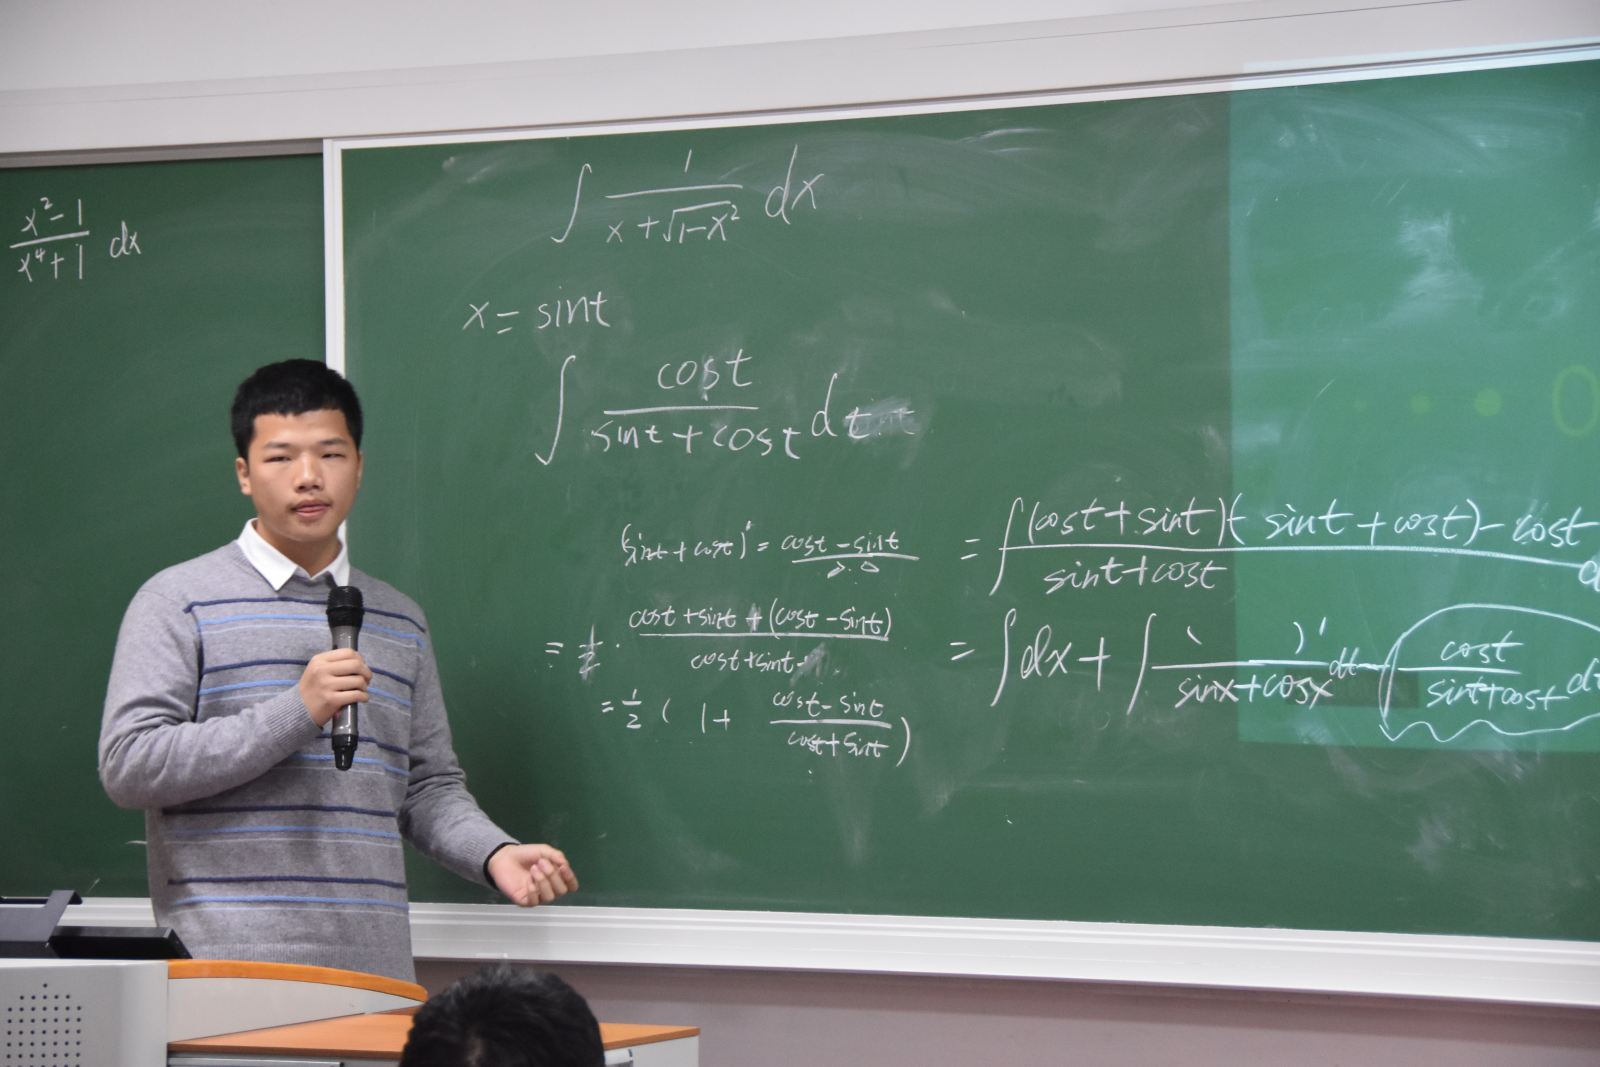 x²-1
x⁴+1 dx
∫ 1/(x+√(1-x²)) dx
x = sint
∫ cost/(sint+cost) dt
(sint+cost)' = cost-sint
= 1/2 · (cost+sint+(cost-sint))/(cost+sint)
= 1/2 ( 1+ (cost-sint)/(cost+sint) )
= ∫ (cost+sint)+(sint+cost)-cost / (sint+cost)
= ∫dx + ∫ ( )'/(sinx+cosx) dt - ∫ cost/(sint+cost) dt